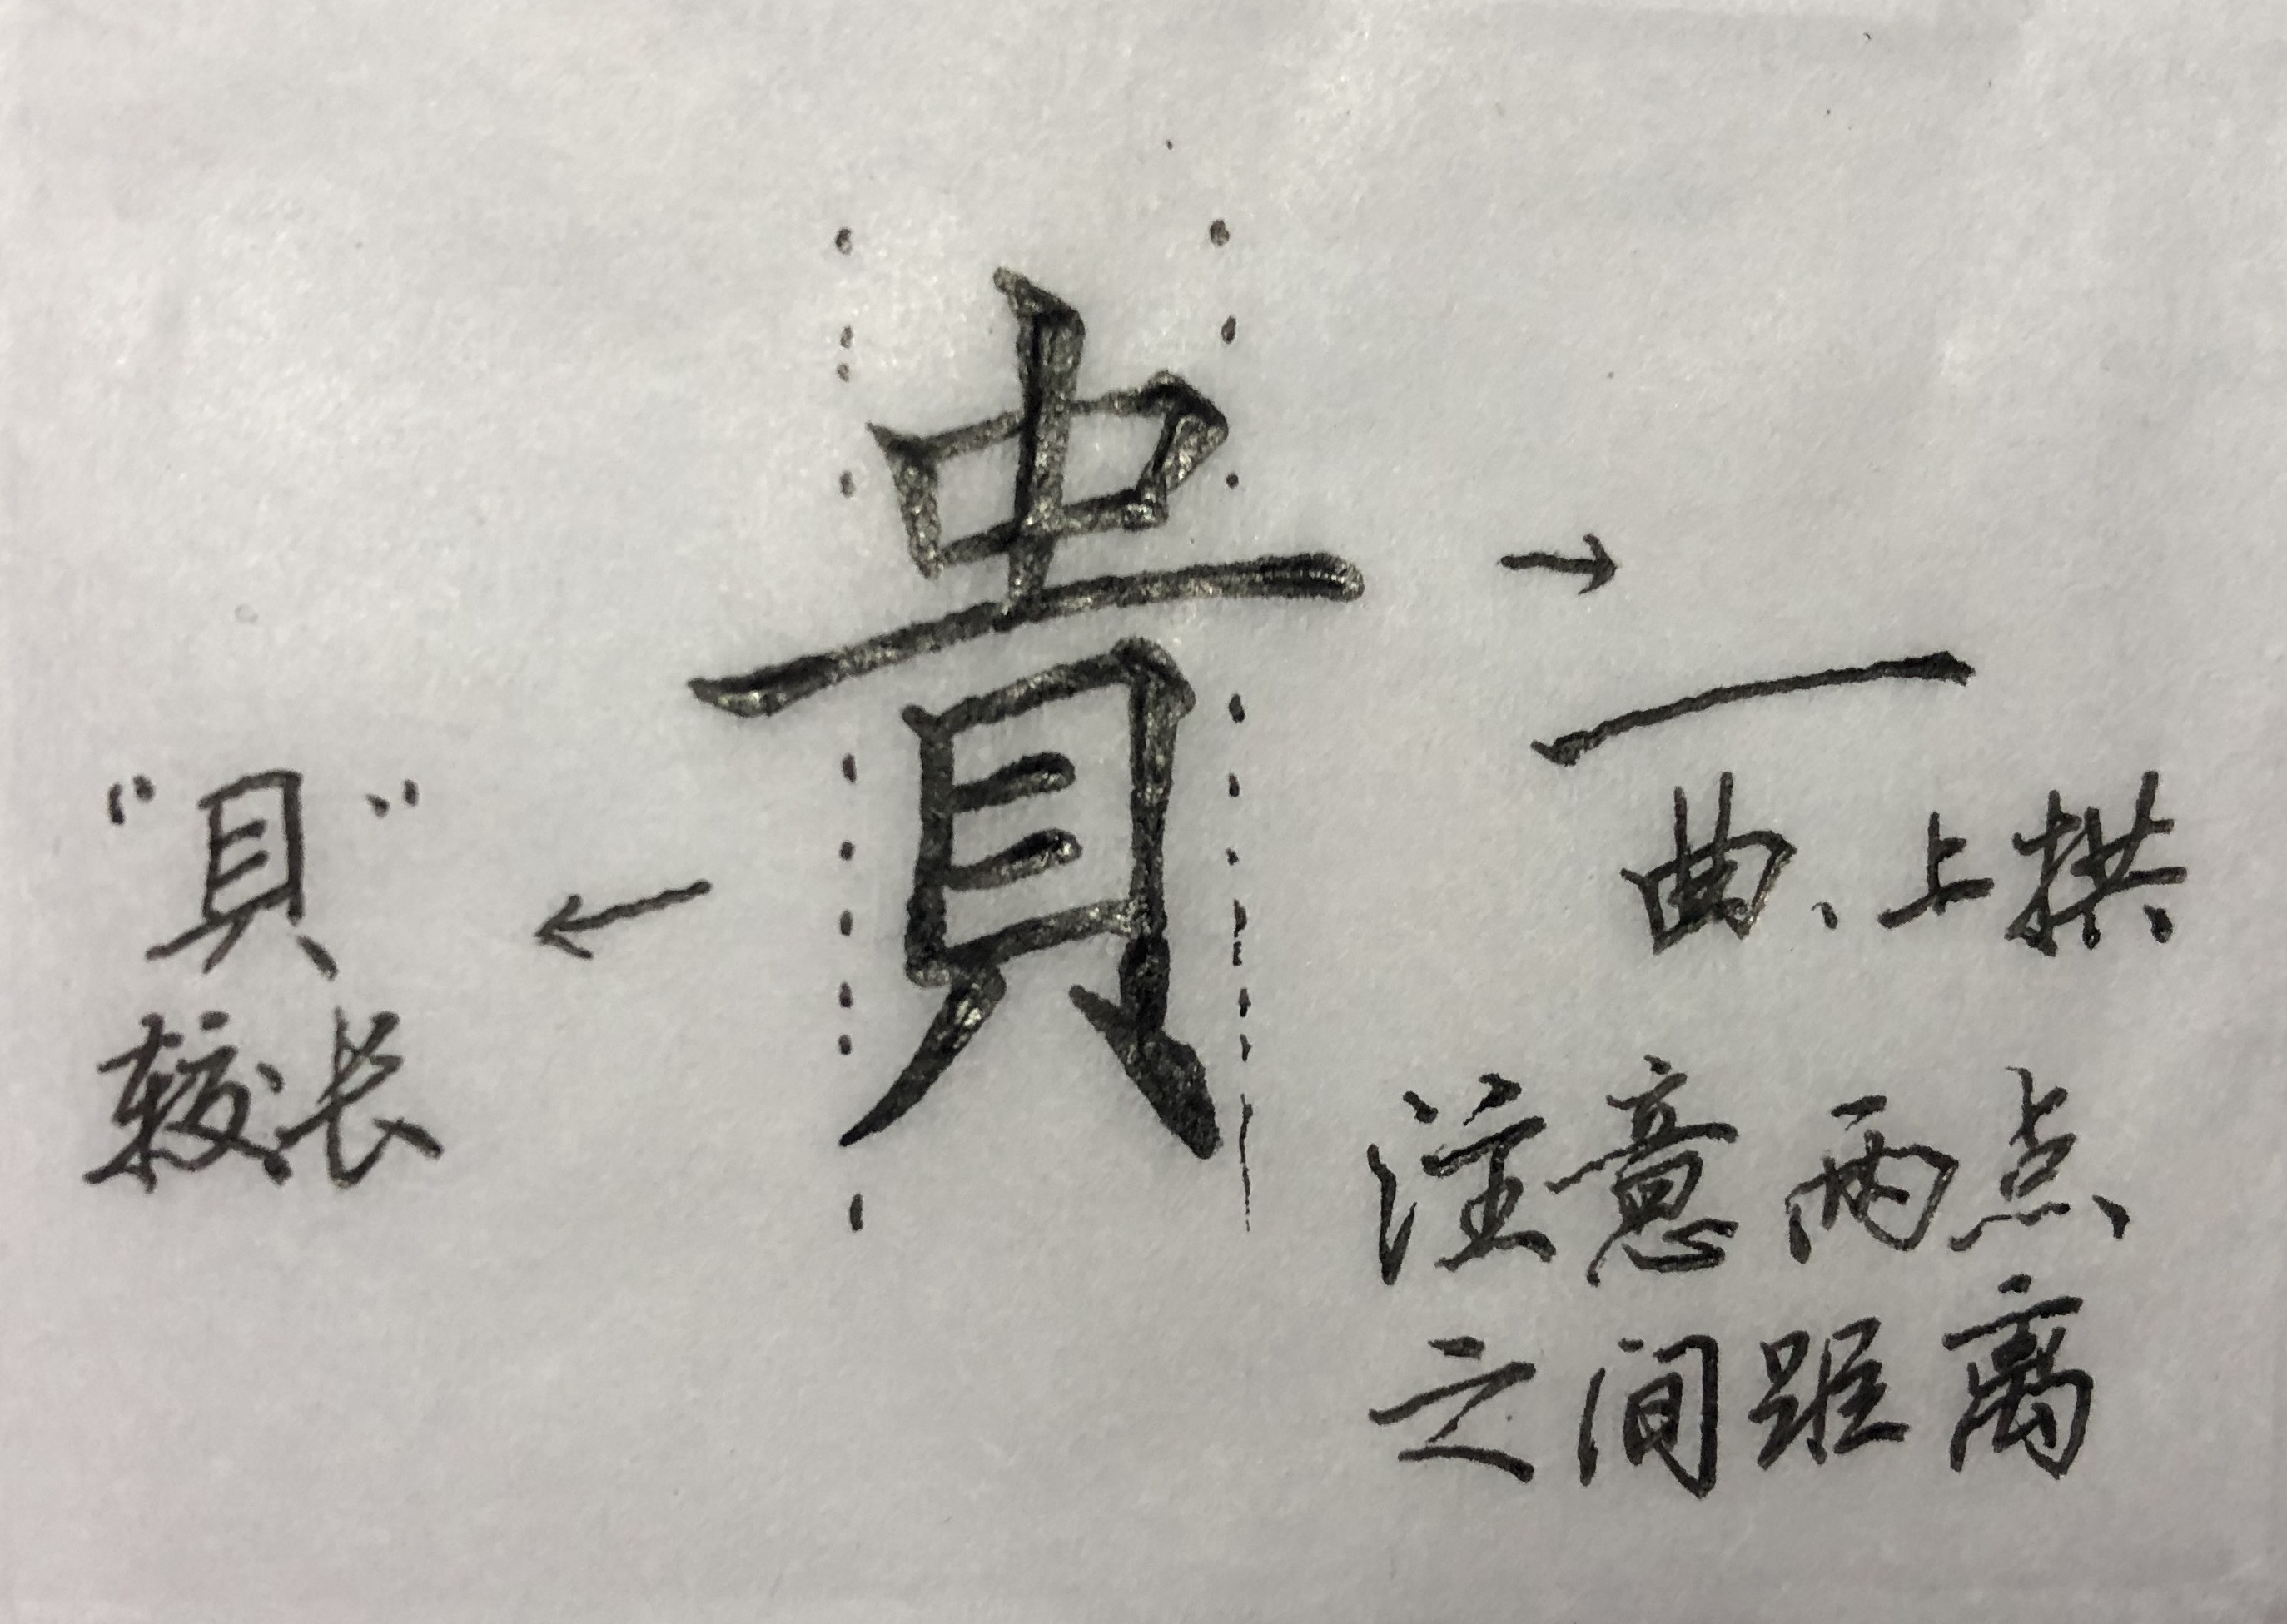 貴
"貝"
较长
一
曲、上拱
注意两点
之间距离